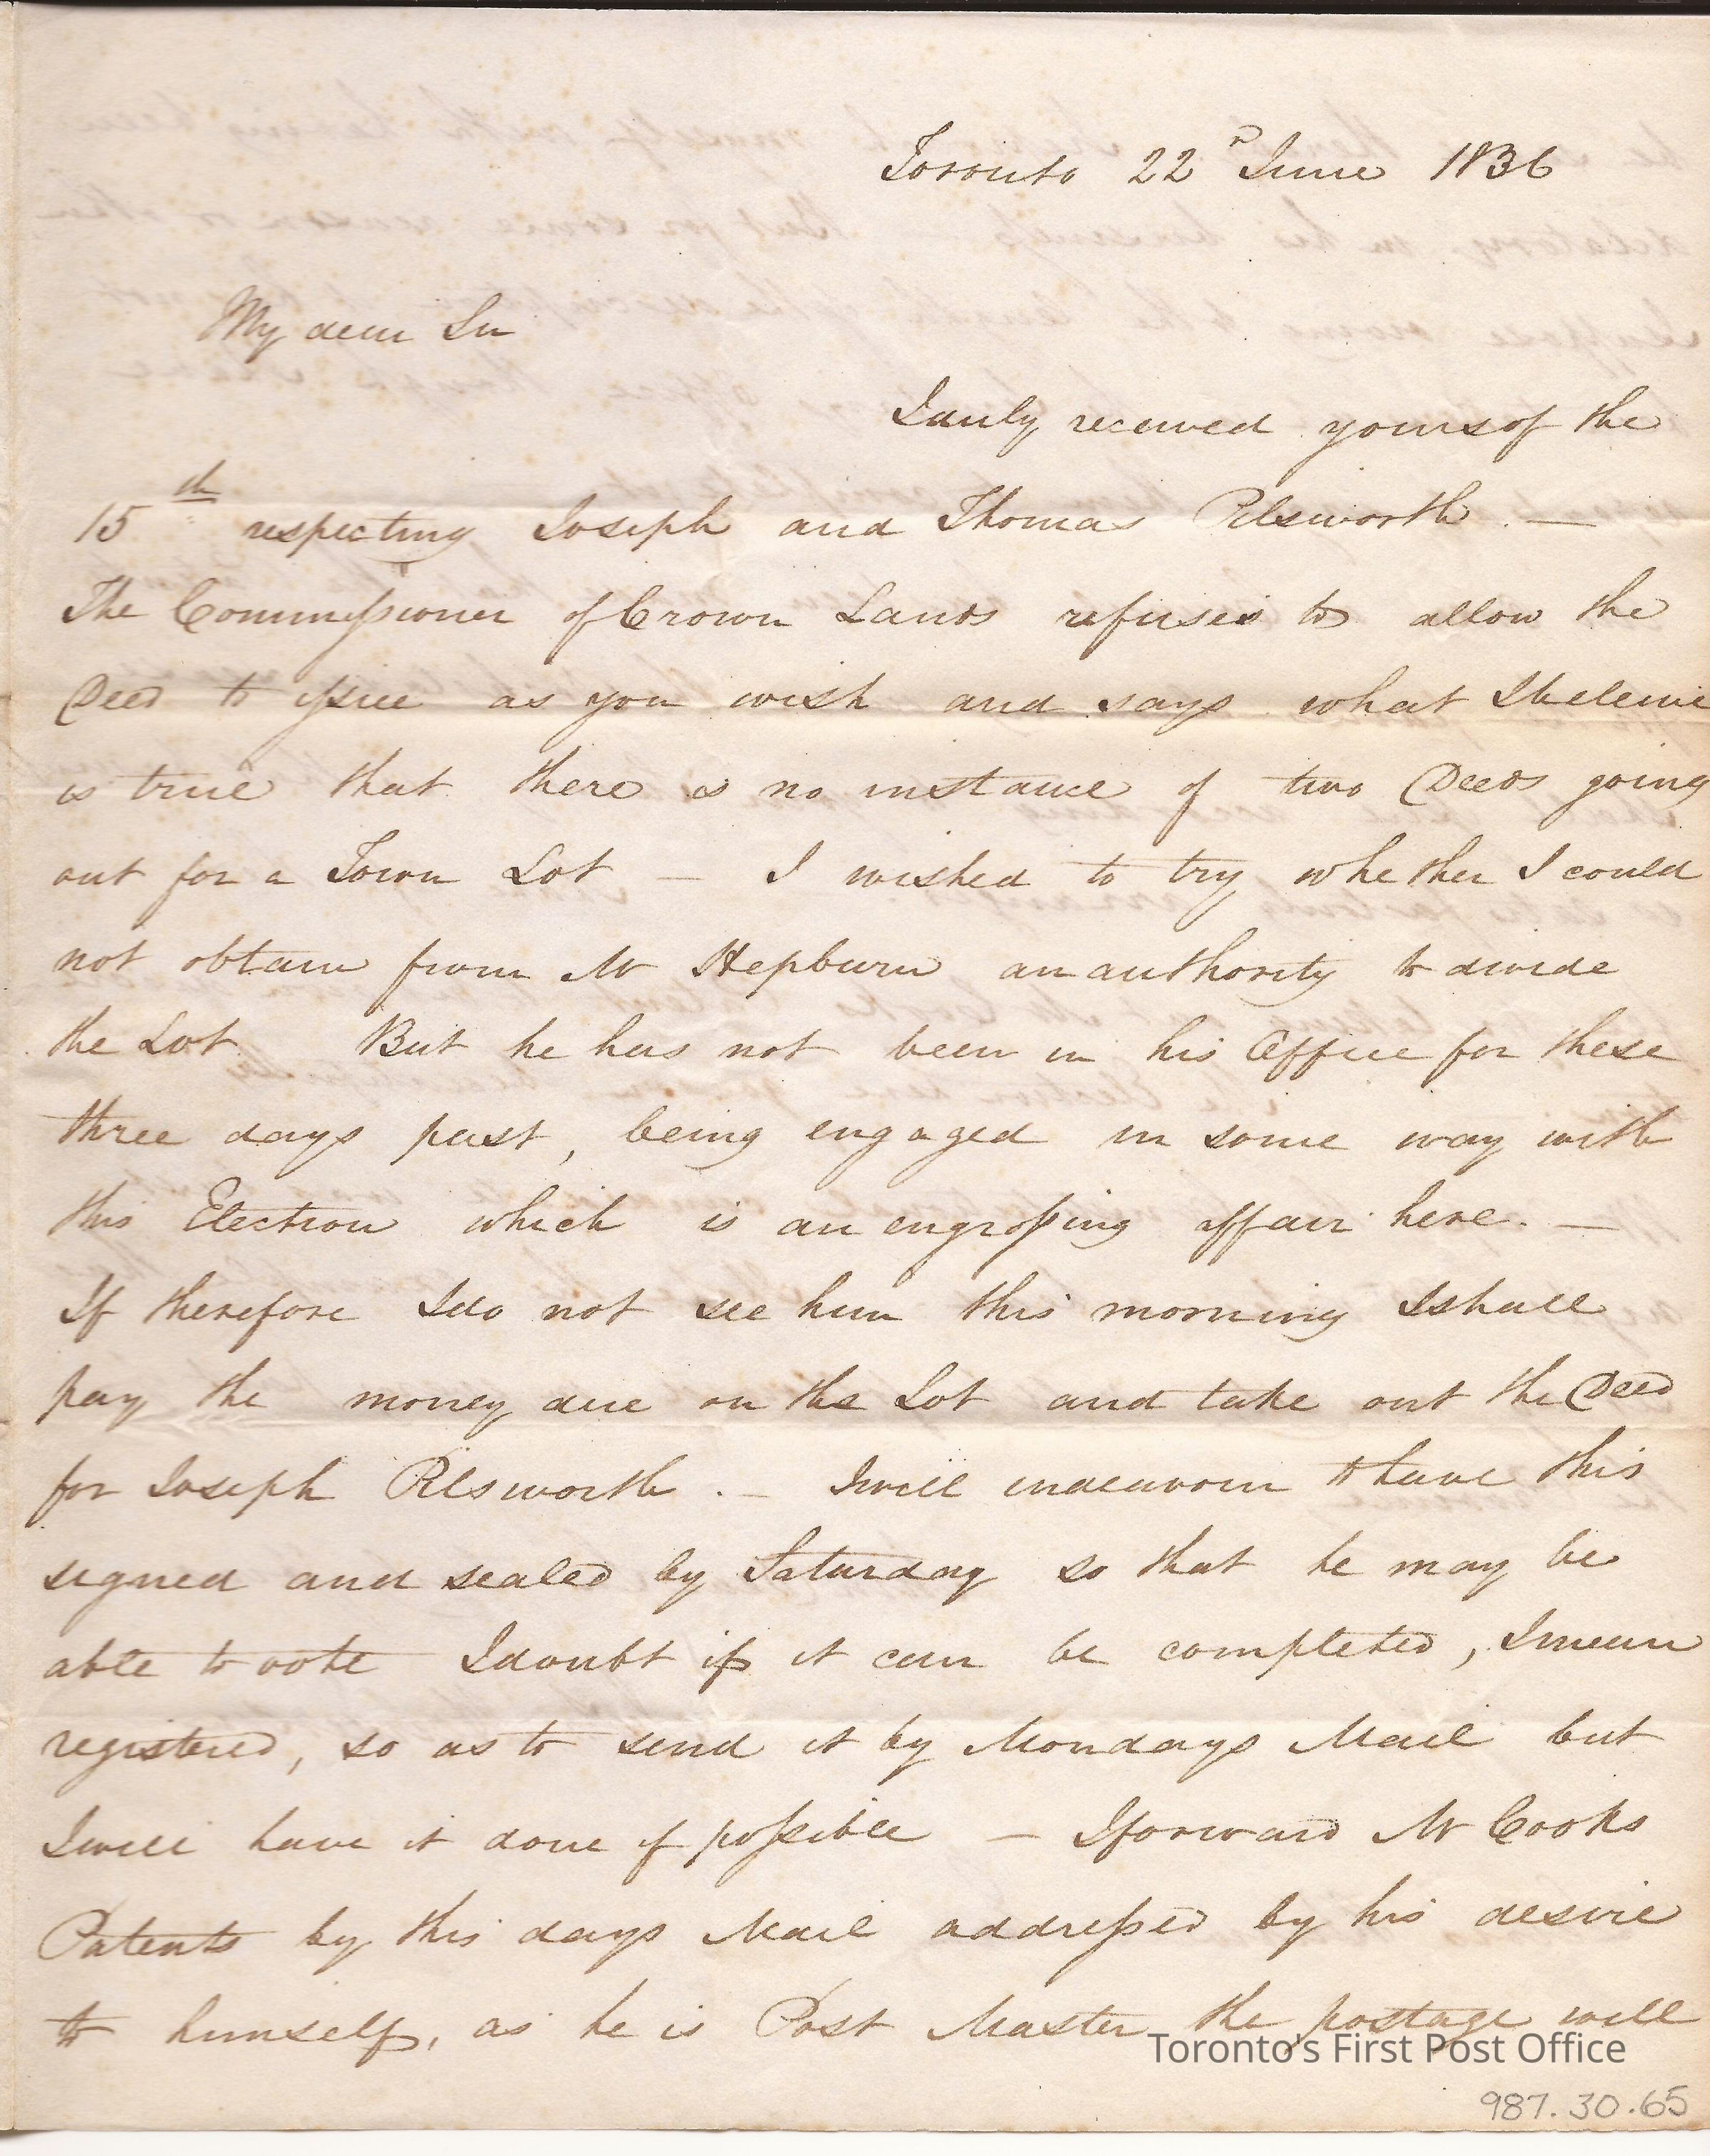 Toronto 22d June 1836
My dear Sir
I duly received yours of the
15th respecting Joseph and Thomas Pilsworth. —
The Commissioner of Crown Lands refuses to allow the
Deed to issue as you wish and says what I believe
is true that there is no instance of two Deeds going
out for a Town Lot — I wished to try whether I could
not obtain from Mr Hepburn an authority to divide
the Lot But he has not been in his Office for these
three days past, being engaged in some way with
this Election which is an engrossing affair here. —
If therefore I do not see him this morning I shall
pay the money due on the Lot and take out the Deed
for Joseph Pilsworth. — I will endeavour to have this
signed and sealed by Saturday so that he may be
able to vote I doubt if it can be completed, I mean
registered, so as to send it by Mondays Mail but
I will have it done if possible — I forward Mr Cooks
Patents by this days Mail addressed by his desire
to himself, as he is Post Master the postage will
Toronto's First Post Office
987.30.65